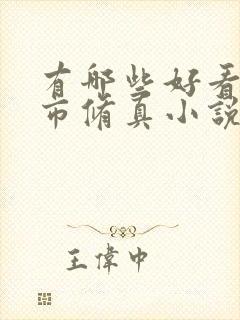 有哪些好看
市脩真小說
王偉中